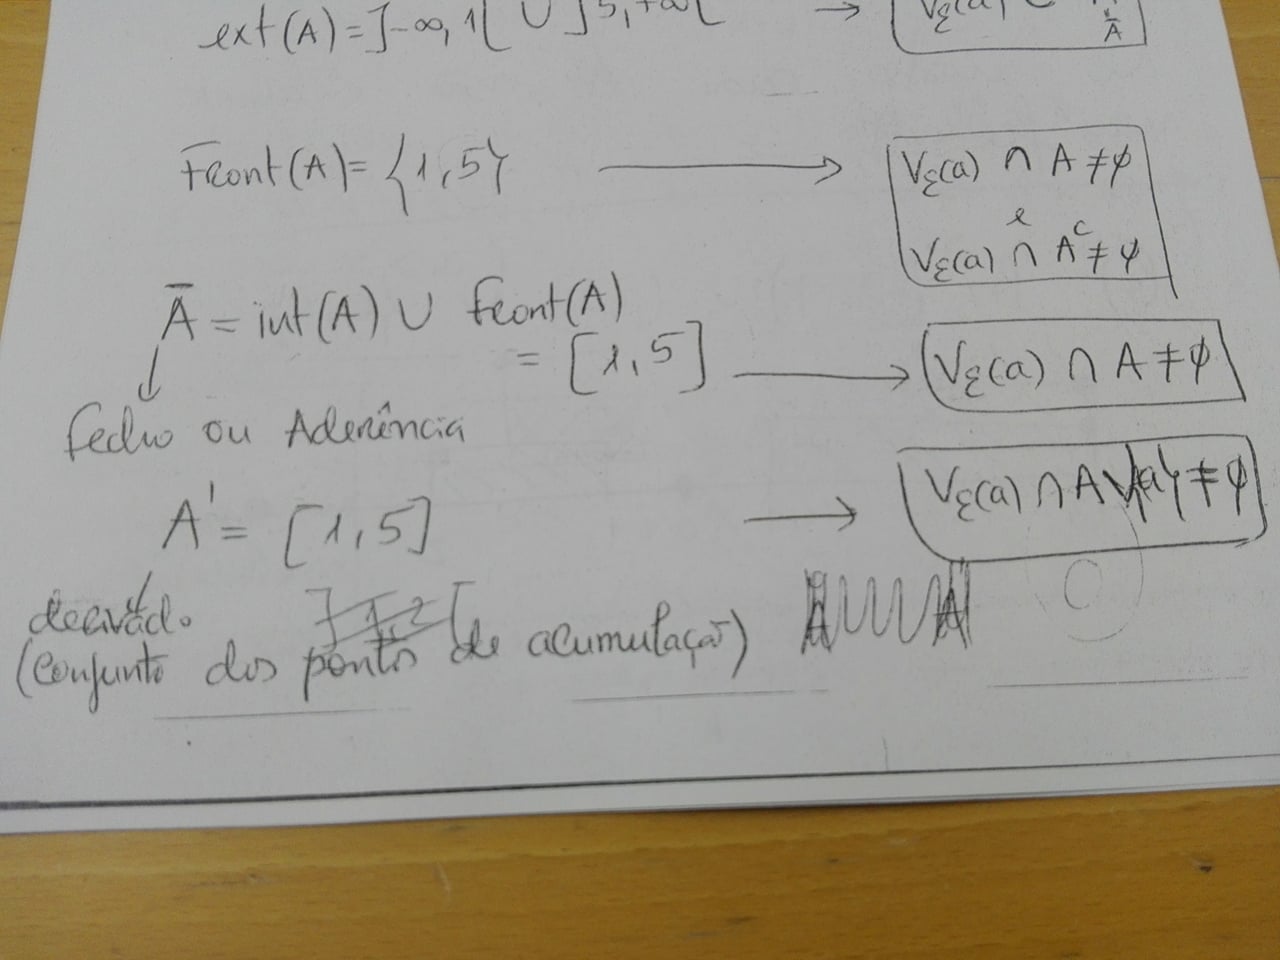 ext(A) = ]-∞, 1[ ∪ ]5, +∞[ → Vε(a) ⊂
Front(A) = {1, 5} → Vε(a) ∩ A ≠ ϕ
e
Vε(a) ∩ Aᶜ ≠ ϕ
Ā = int(A) ∪ Front(A)
= [1, 5] → Vε(a) ∩ A ≠ ϕ
Fecho ou Aderência
A' = [1, 5] → Vε(a) ∩ A \ {a} ≠ ϕ
derivado
(conjunto dos pontos de acumulação)